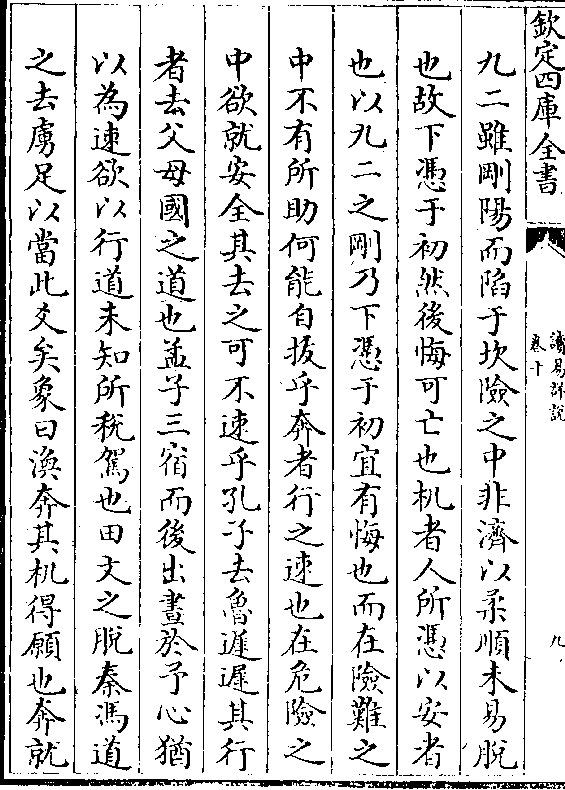 欽定四庫全書
讀易詳說
卷十
九
九二雖剛陽而陷于坎險之中非濟以柔順未易脫
也故下憑于初然後悔可亡也机者人所憑以安者
也以九二之剛乃下憑于初宜有悔也而在險難之
中不有所助何能自拔乎奔者行之速也在危險之
中欲就安全其去之可不速乎孔子去魯遲遲其行
者去父母國之道也孟子三宿而後出晝於予心猶
以為速欲以行道未知所稅駕也田文之脫秦馮道
之去虜足以當此爻矣象曰渙奔其机得願也奔就